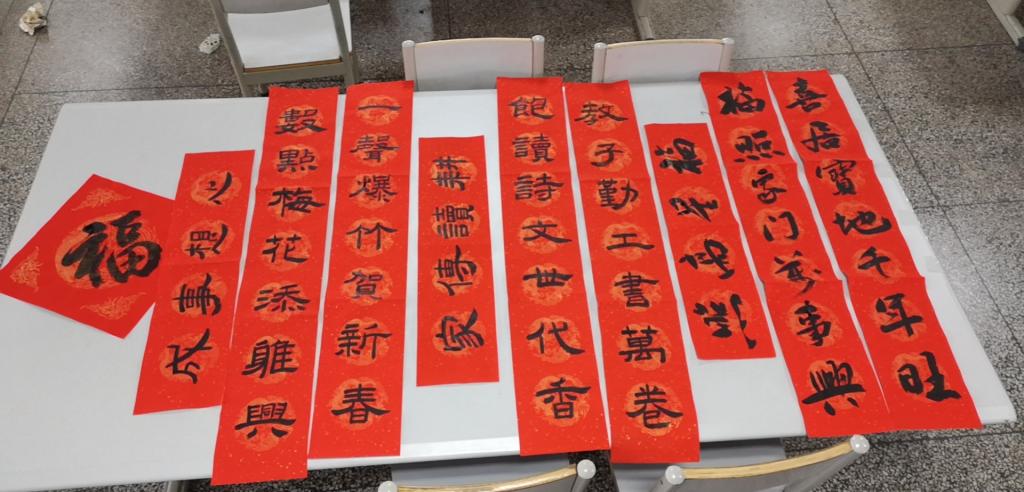 喜居寶地千年旺
福照家门萬事興
福星高照
教子勤工書萬卷
飽讀詩文世代香
耕讀傳家
一聲爆竹賀新春
數點梅花添雅興
心想事成
福